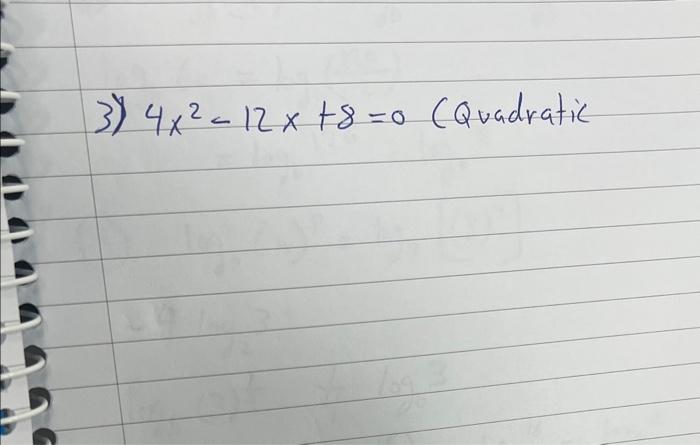 3) 4x² - 12x +8=0 (Quadratic